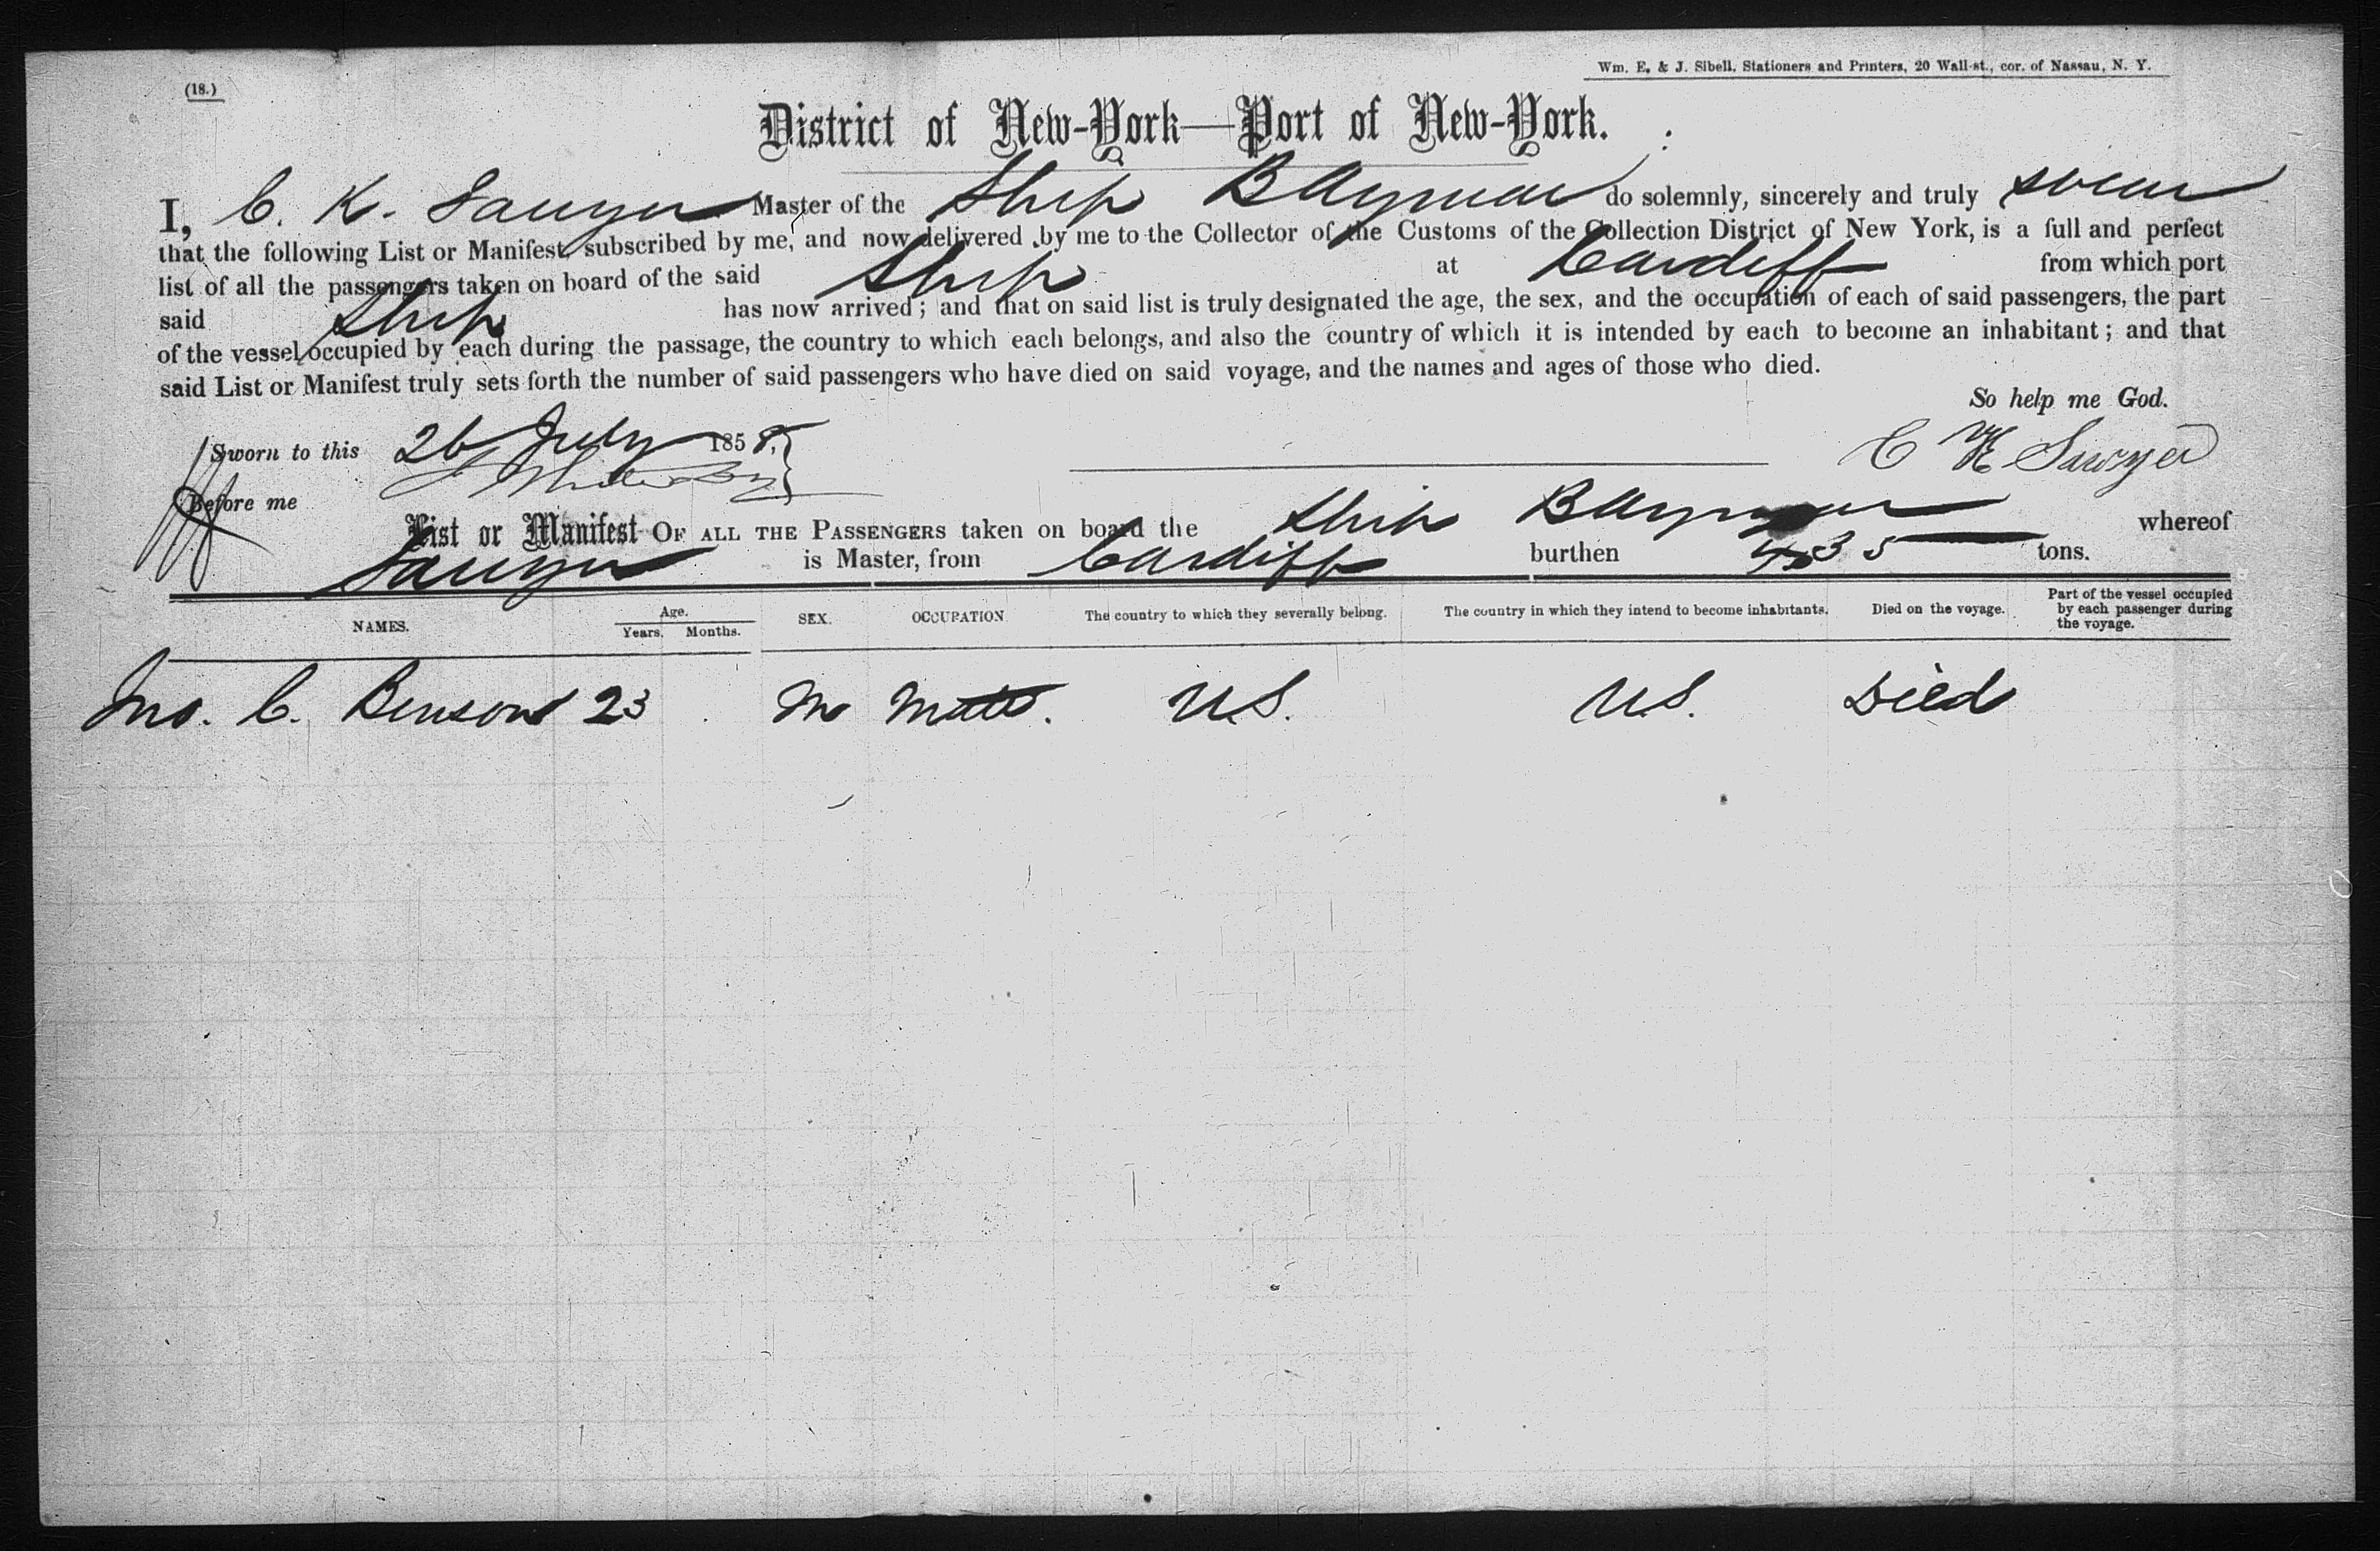 (18.)
Wm. E. & J. Sibell, Stationers and Printers, 20 Wall-st., cor. of Nassau, N. Y.
District of New-York—Port of New-York.
I, C. K. Sawyer Master of the Ship B Aymar do solemnly, sincerely and truly swear
that the following List or Manifest, subscribed by me, and now delivered by me to the Collector of the Customs of the Collection District of New York, is a full and perfect
list of all the passengers taken on board of the said Ship at Cardiff from which port
said Ship has now arrived; and that on said list is truly designated the age, the sex, and the occupation of each of said passengers, the part
of the vessel occupied by each during the passage, the country to which each belongs, and also the country of which it is intended by each to become an inhabitant; and that
said List or Manifest truly sets forth the number of said passengers who have died on said voyage, and the names and ages of those who died.
So help me God.
Sworn to this 26 July 1858.
C K Sawyer
Before me
List or Manifest OF ALL THE PASSENGERS taken on board the Ship B Aymar whereof
Sawyer is Master, from Cardiff burthen 435 tons.
NAMES. Age. Years. Months. SEX. OCCUPATION The country to which they severally belong. The country in which they intend to become inhabitants. Died on the voyage. Part of the vessel occupied by each passenger during the voyage.
Jno. C. Benson 23 M Mate. U.S. U.S. Died